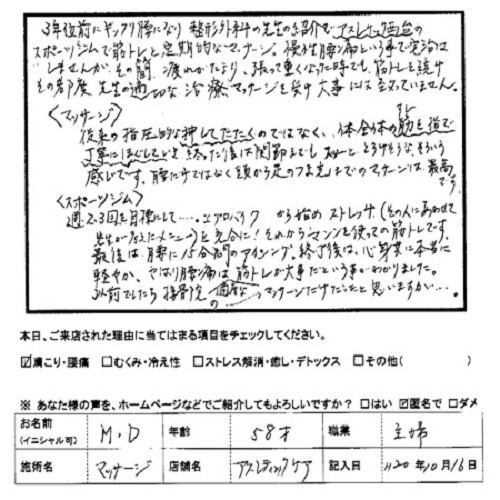 3年位前にギックリ腰になり 整形外科の先生の紹介でアスレティック仙台の
スポーツジムで筋トレと定期的なマッサージ。慢性腰痛という事で完治は
しませんが、その間、疲れがたまり、張って重くなった時でも、筋トレを続け
その都度、先生の適切な治療マッサージを受け大事には至っていません。
〈マッサージ〉
従来の指圧的な押してたたくのではなく、体全体の筋を指で
丁寧にほぐしていき 終った後は関節までも とろけそうな、そういう
感じです。腰だけではなく頭から足のつま先までのマッサージは、最高
です。
〈スポーツジム〉
週2~3回を目標にして・・・・エアロバイク から始め ストレッチ(その人にあわせて
先生が考えたメニュー)を充分に! それからマシンを使っての筋トレです。
最後は腰に15分間のアイシング。終了後は、心身共に本当に
軽やか、やはり腰痛は筋トレが大事だという事がわかりました。
以前でしたら 接骨院の マッサージだけだったと思いますが・・・。
本日、ご来店された理由に当てはまる項目をチェックしてください。
☑肩こり・腰痛 □むくみ・冷え性 □ストレス解消・癒し・デトックス □その他( )
※ あなた様の声を、ホームページなどでご紹介してもよろしいですか? □はい ☑匿名で □ダメ
お名前(イニシャル可) M.D 年齢 58才 職業 主婦
施術名 マッサージ 店舗名 アスレティックケア 記入日 H20年10月16日